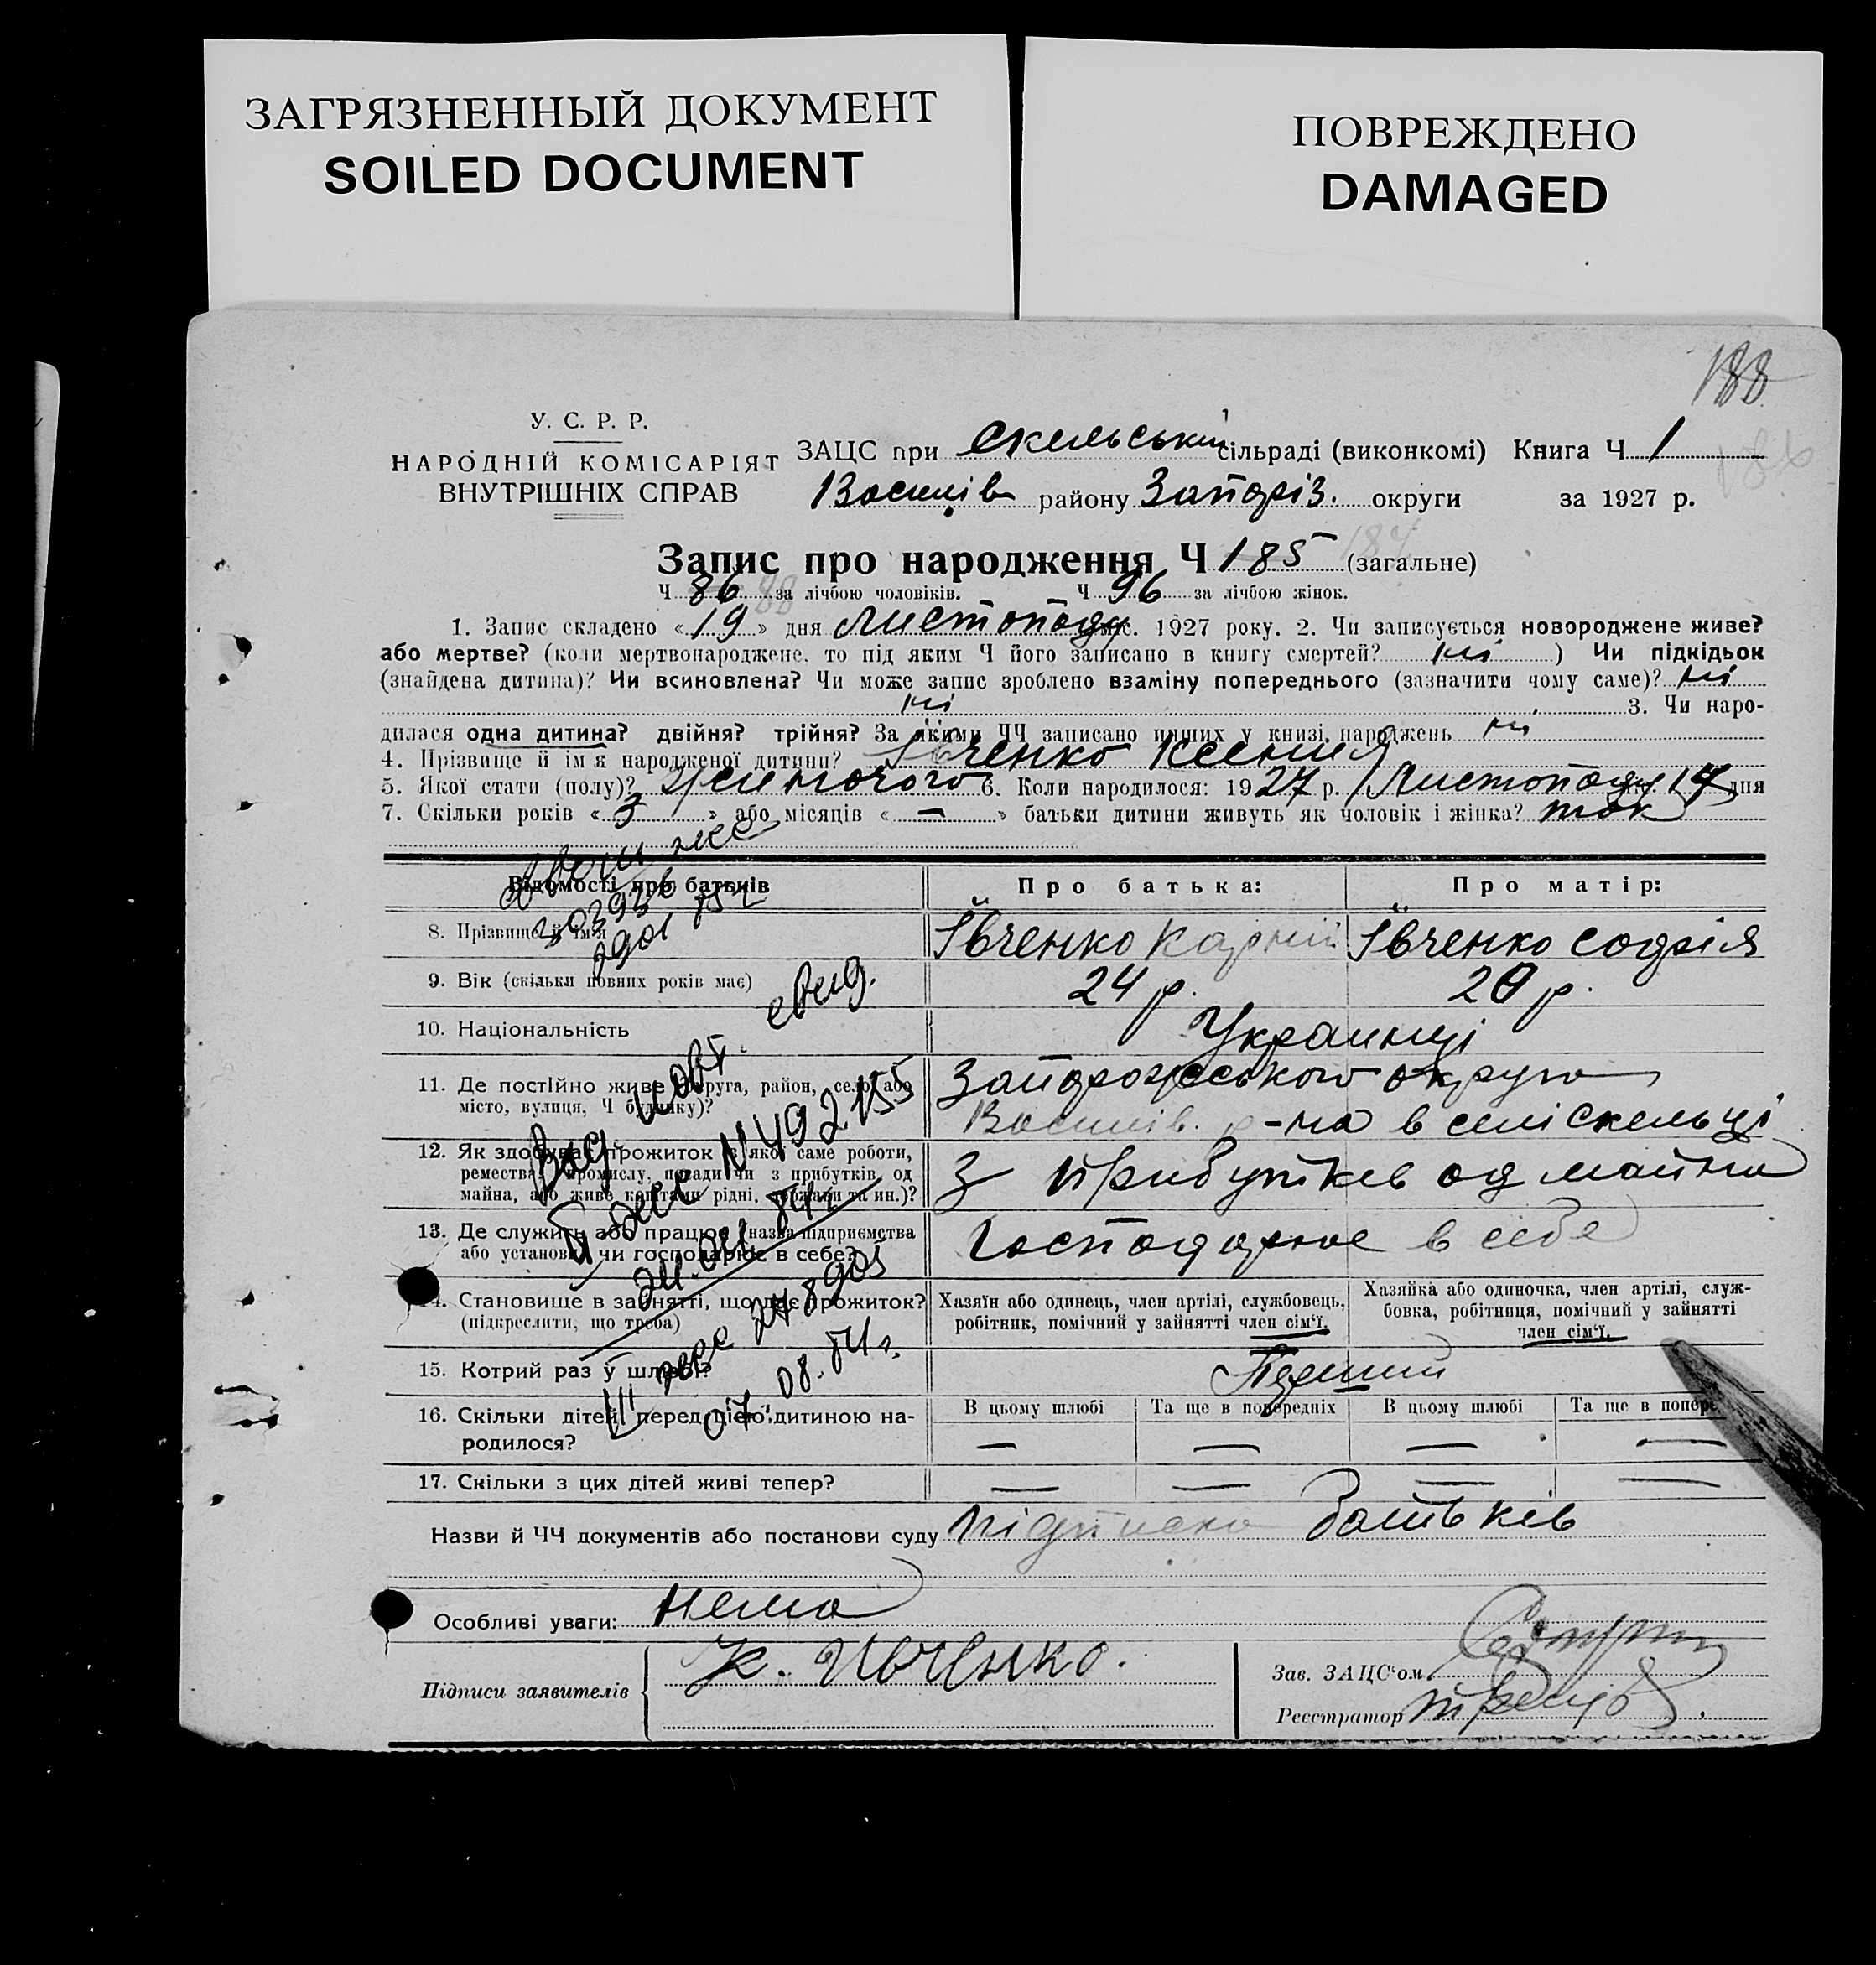 ЗАГРЯЗНЕННЫЙ ДОКУМЕНТ
SOILED DOCUMENT
ПОВРЕЖДЕНО
DAMAGED
188
У. С. Р. Р.
НАРОДНІЙ КОМІСАРІЯТ
ВНУТРІШНІХ СПРАВ
ЗАЦС при Скельській сільраді (виконкомі) Книга Ч 1
Василів району Запоріз. округи за 1927 р.
Запис про народження Ч 185 (загальне)
Ч 86 за лічбою чоловіків. Ч 96 за лічбою жінок.
1. Запис складено «19» дня Листопаду міс. 1927 року. 2. Чи записується новороджене живе?
або мертве? (коли мертвонароджене, то під яким Ч його записано в книгу смертей? ні ) Чи підкідьок
(знайдена дитина)? Чи всиновлена? Чи може запис зроблено взаміну попереднього (зазначити чому саме)? ні
ні 3. Чи наро-
дилася одна дитина? двійня? трійня? За якими ЧЧ записано инших у книзі народжень ні
4. Прізвище й ім'я народженої дитини? Івченко Ксения
5. Якої стати (полу)? жиночого 6. Коли народилося: 1927 р. Листопаду 17 дня
7. Скільки років «3» або місяців «—» батьки дитини живуть як чоловік і жінка? так
Відомості про батьків
Про батька:
Про матір:
8. Прізвище й ім'я
Івченко Карній
Івченко Софія
9. Вік (скільки повних років має)
24 р.
20 р.
10. Національність
Украинці
11. Де постійно живе (округа, район, село або
місто, вулиця, Ч будинку)?
Запорожського округа
Василів. р-на в селі Скельці
12. Як здобуває прожиток (з якої саме роботи,
ремества, промислу, посади чи з прибутків од
майна, або живе коштами рідні, держави та ин.)?
З прибутків од майна
13. Де служить або працює (назва підприємства
або установи) чи господарює в себе?
Господарює в себе
14. Становище в занятті, що дає прожиток?
(підкреслити, що треба)
Хазяїн або одинець, член артілі, службовець,
робітник, помічний у зайнятті член сім'ї.
Хазяйка або одиночка, член артілі, служ-
бовка, робітниця, помічний у зайнятті
член сім'ї.
15. Котрий раз у шлюбі?
Перший
16. Скільки дітей перед цією дитиною на-
родилося?
В цьому шлюбі
Та ще в попередніх
В цьому шлюбі
Та ще в попере
— — — —
17. Скільки з цих дітей живі тепер?
— — — —
Назви й ЧЧ документів або постанови суду підписка батьків
Особливі уваги: Нема
Підписи заявителів
К. Ивченко.
Зав. ЗАЦС'ом
Реєстратор
свид.
N 492155
07.08.84г.